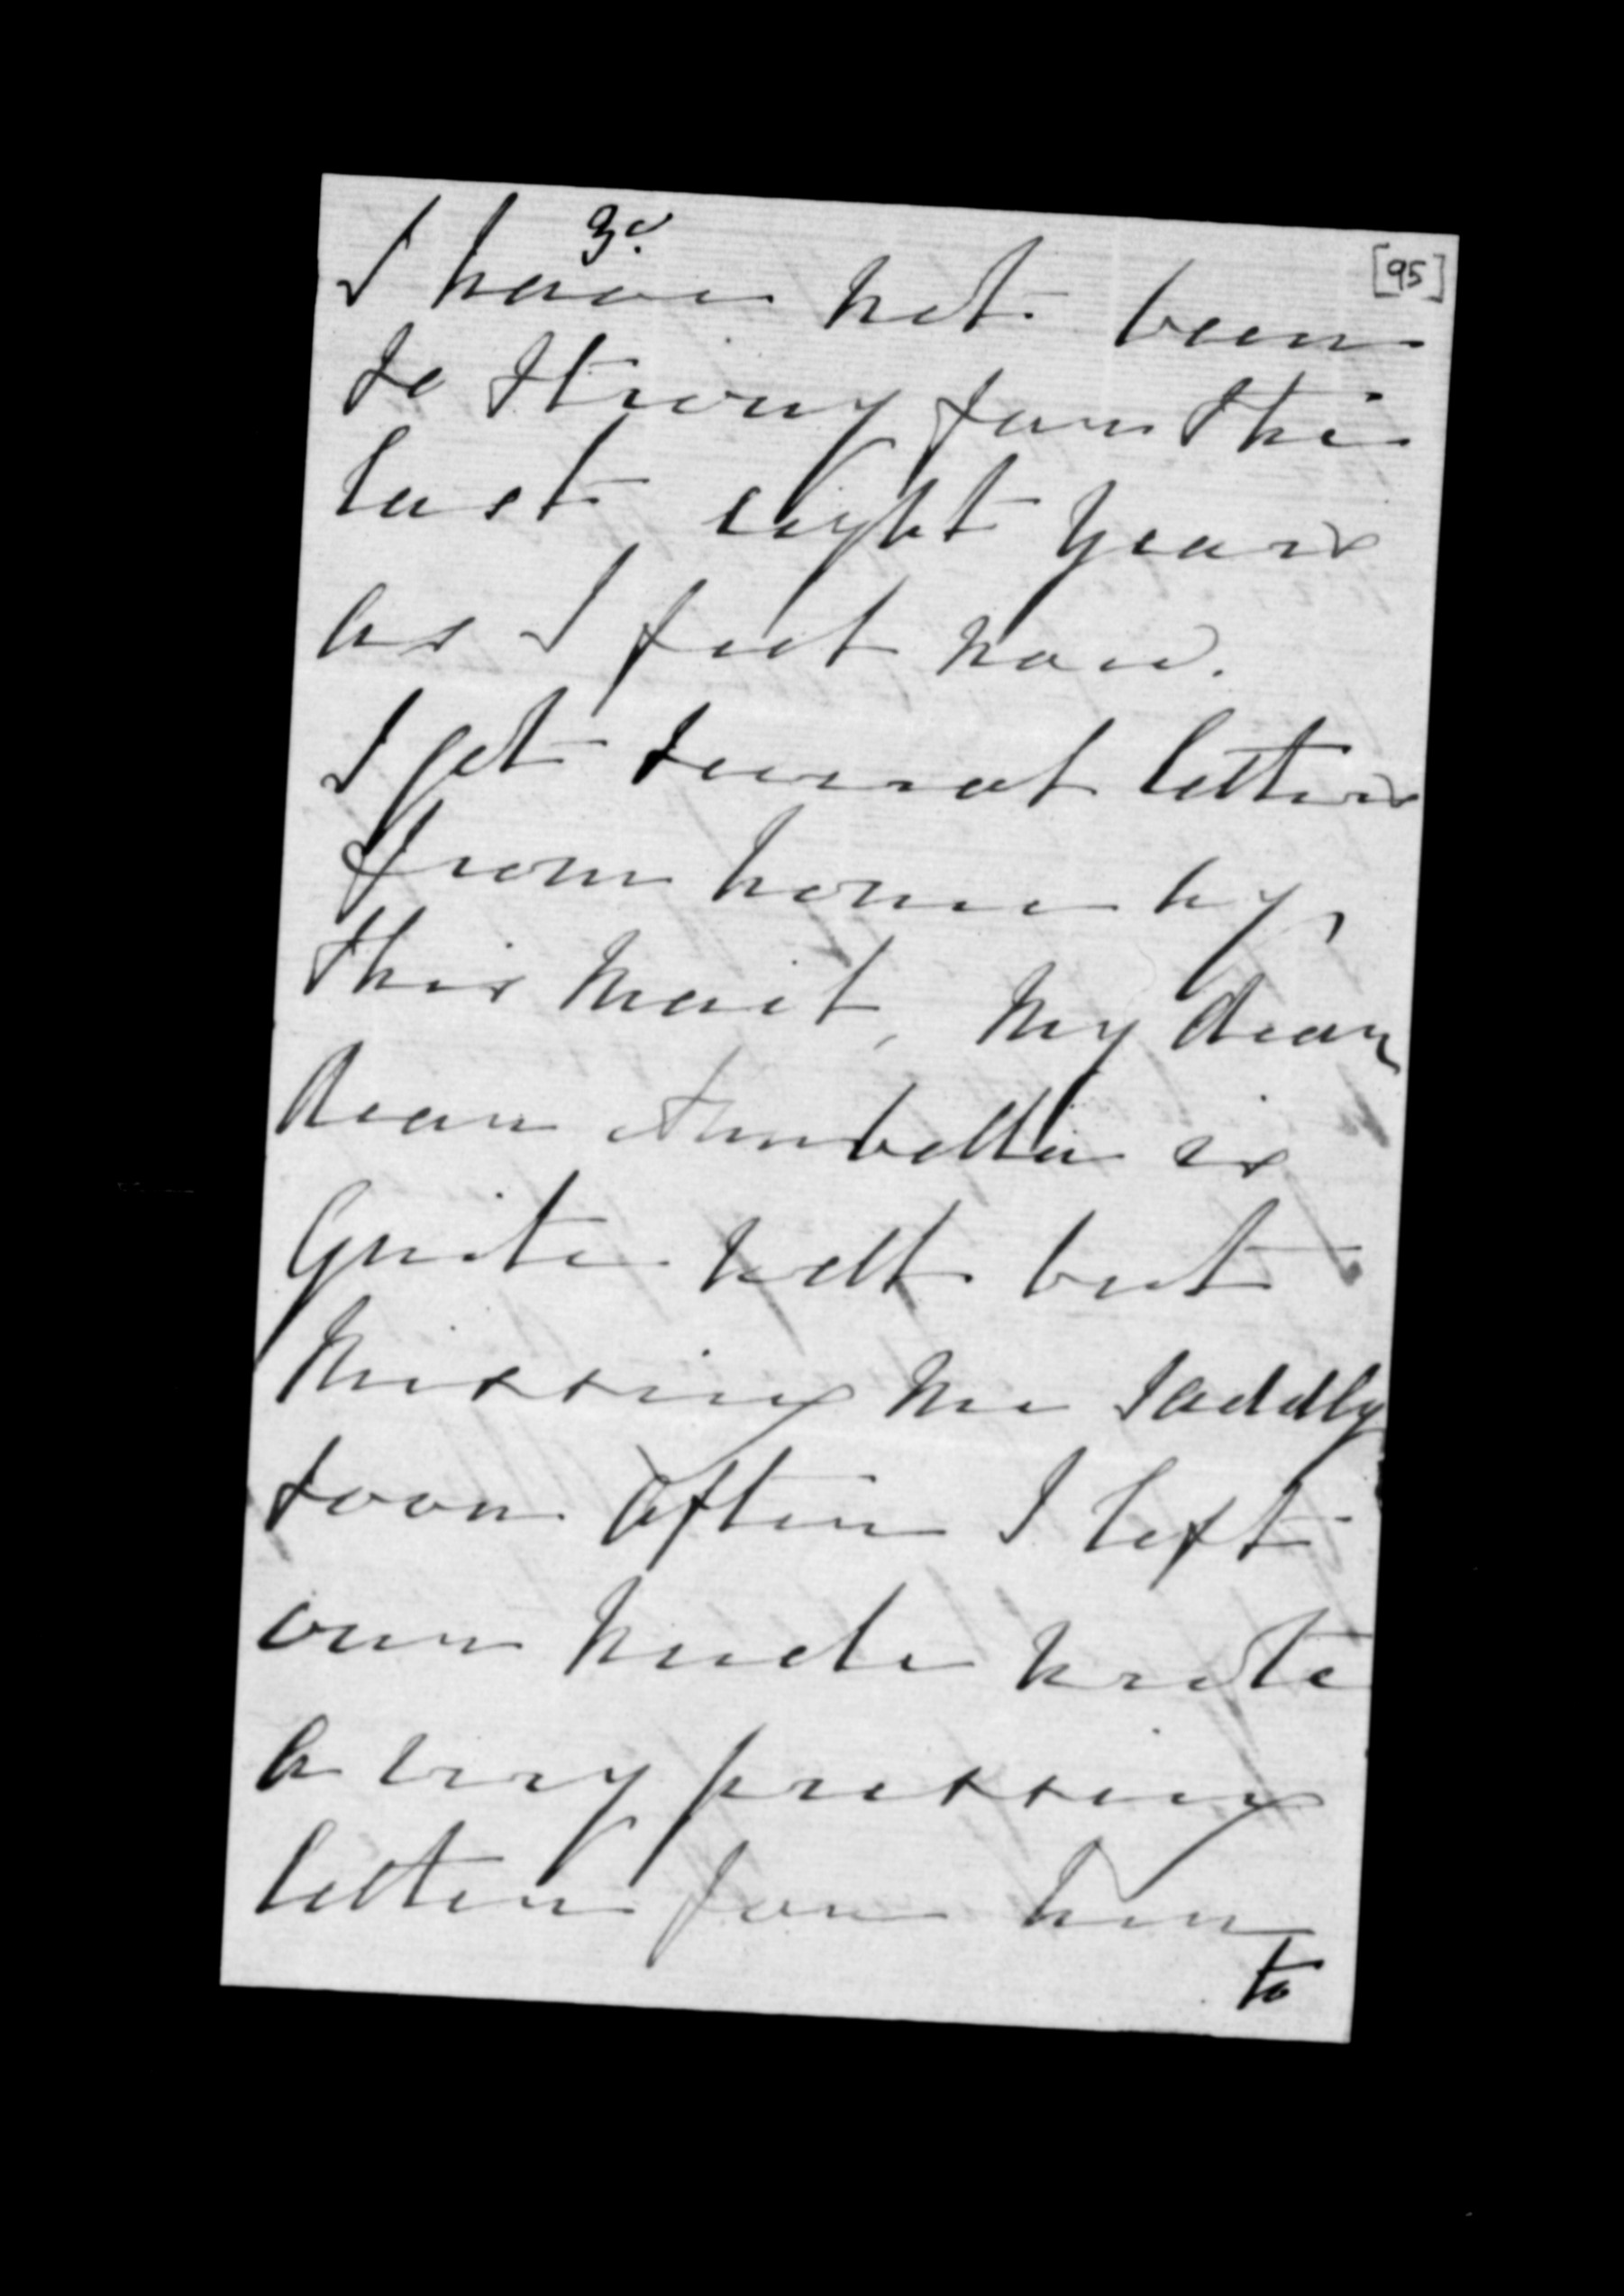 3d.
[95]
I have not been
so strong for this
last eight years
as I feel now.
I got several letters
from home by
this mail, my dear
dear Annabella is
quite well but
missing me saddly
soon after I left
our wrote
a very pressing
letter for him
to